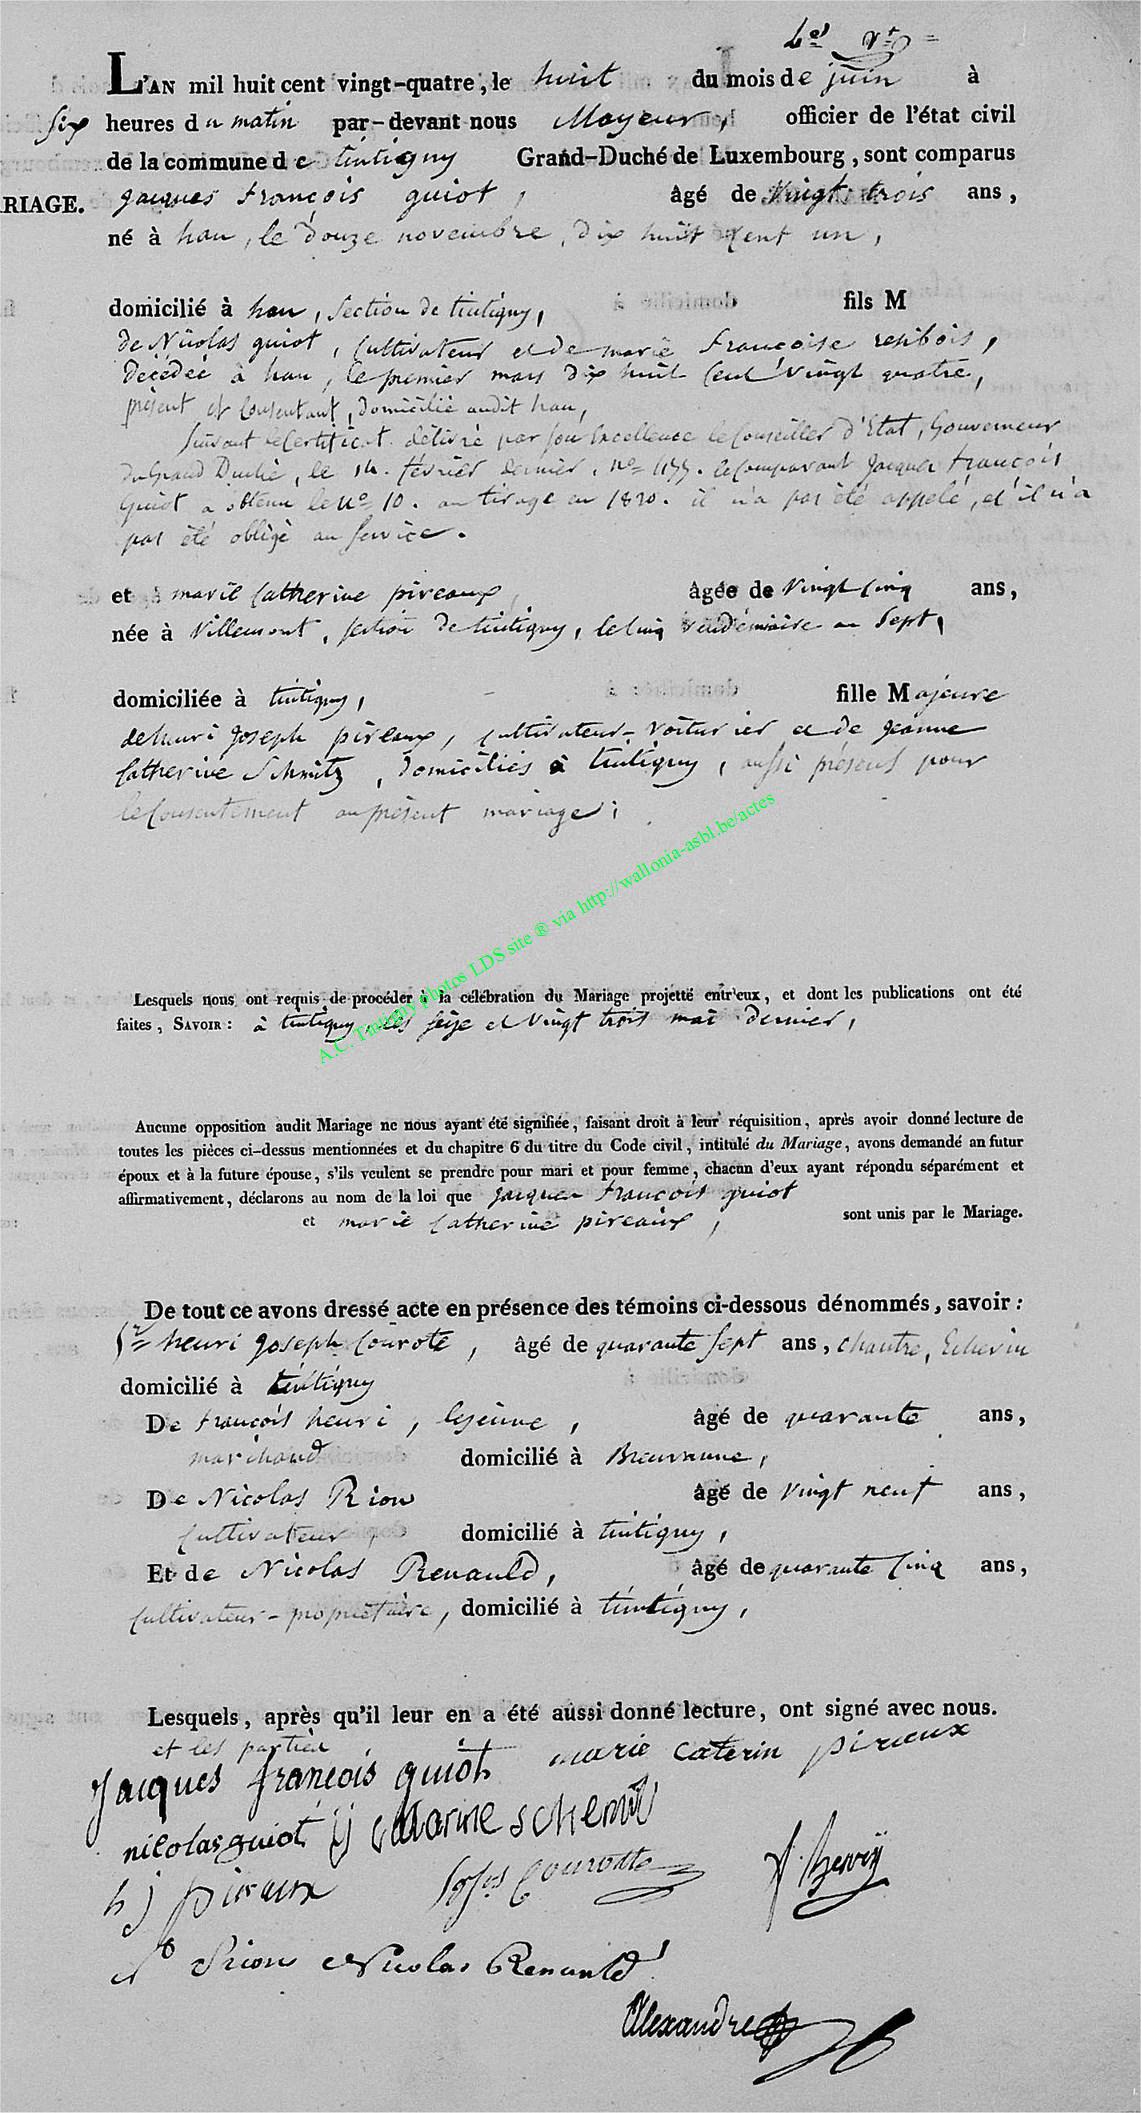 L'AN mil huit cent vingt-quatre, le huit du mois de juin à
six heures du matin par-devant nous Mayeur, officier de l'état civil
de la commune de tintigny Grand-Duché de Luxembourg, sont comparus
RIAGE. Jacques François guiot, âgé de Vingt trois ans,
né à han, le douze novembre, dix huit cent un,
domicilié à han, section de tintigny, fils M
de Nicolas guiot, cultivateur et de marie Françoise resibois,
décédée à han, le premier mars dix huit cent vingt quatre,
présent et consentant, domicilié audit han,
suivant le certificat délivré par son Excellence le Conseiller d'Etat, Gouverneur
du Grand Duché, le 14. février dernier, nº 1177. le comparant Jacques François
Guiot a obtenu le nº 10. au tirage en 1820. il n'a pas été appelé, et il n'a
pas été obligé au service.
et marie Catherine pireaux, âgée de Vingt cinq ans,
née à Villemont, section de tintigny, le cinq vendémiaire an Sept,
domiciliée à tintigny, fille Majeure
de henri Joseph pireaux, cultivateur-voiturier et de Jeanne
Catherine Schmitz, domiciliés à tintigny, aussi présens pour
le consentement au présent mariage;
A.C. Tintigny photos LDS site ® via http://wallonia-asbl.be/actes
Lesquels nous ont requis de procéder à la célébration du Mariage projetté entr'eux, et dont les publications ont été
faites, SAVOIR : à tintigny, les seize et Vingt trois mai dernier,
Aucune opposition audit Mariage ne nous ayant été signifiée, faisant droit à leur réquisition, après avoir donné lecture de
toutes les pièces ci-dessus mentionnées et du chapitre 6 du titre du Code civil, intitulé du Mariage, avons demandé au futur
époux et à la future épouse, s'ils veulent se prendre pour mari et pour femme, chacun d'eux ayant répondu séparément et
affirmativement, déclarons au nom de la loi que Jacques François guiot
et marie Catherine pireaux, sont unis par le Mariage.
De tout ce avons dressé acte en présence des témoins ci-dessous dénommés, savoir :
Sr henri Joseph Courote, âgé de quarante sept ans, chantre, Echevin
domicilié à tintigny
De François henri, lejeune, âgé de quarante ans,
marchand domicilié à Breuvanne,
De Nicolas Rion âgé de vingt neuf ans,
cultivateur, domicilié à tintigny,
Et de Nicolas Renauld, âgé de quarante cinq ans,
cultivateur-propriétaire, domicilié à tintigny,
Lesquels, après qu'il leur en a été aussi donné lecture, ont signé avec nous.
et les parties
Jacques françois guiot marie caterin pireaux
nicolas guiot
h j pireaux Courotte f. henrÿ
N Rion Nicolas Renauld
Alexandre